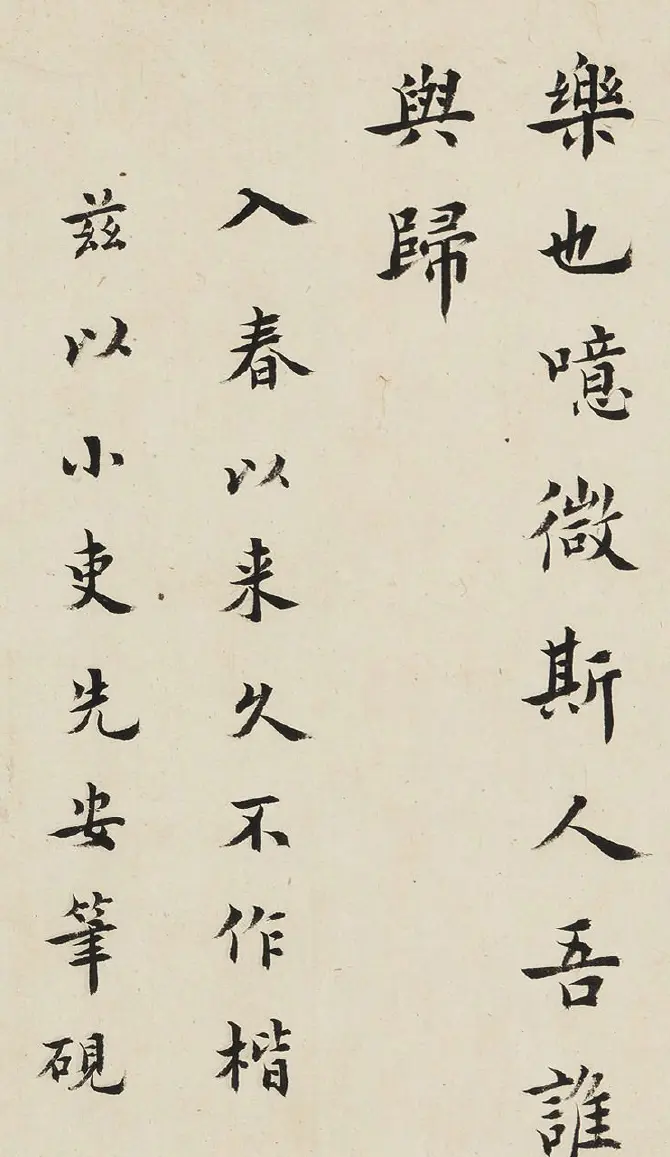 樂也噫微斯人吾誰
與歸
入春以来久不作楷
兹以小吏先安筆硯